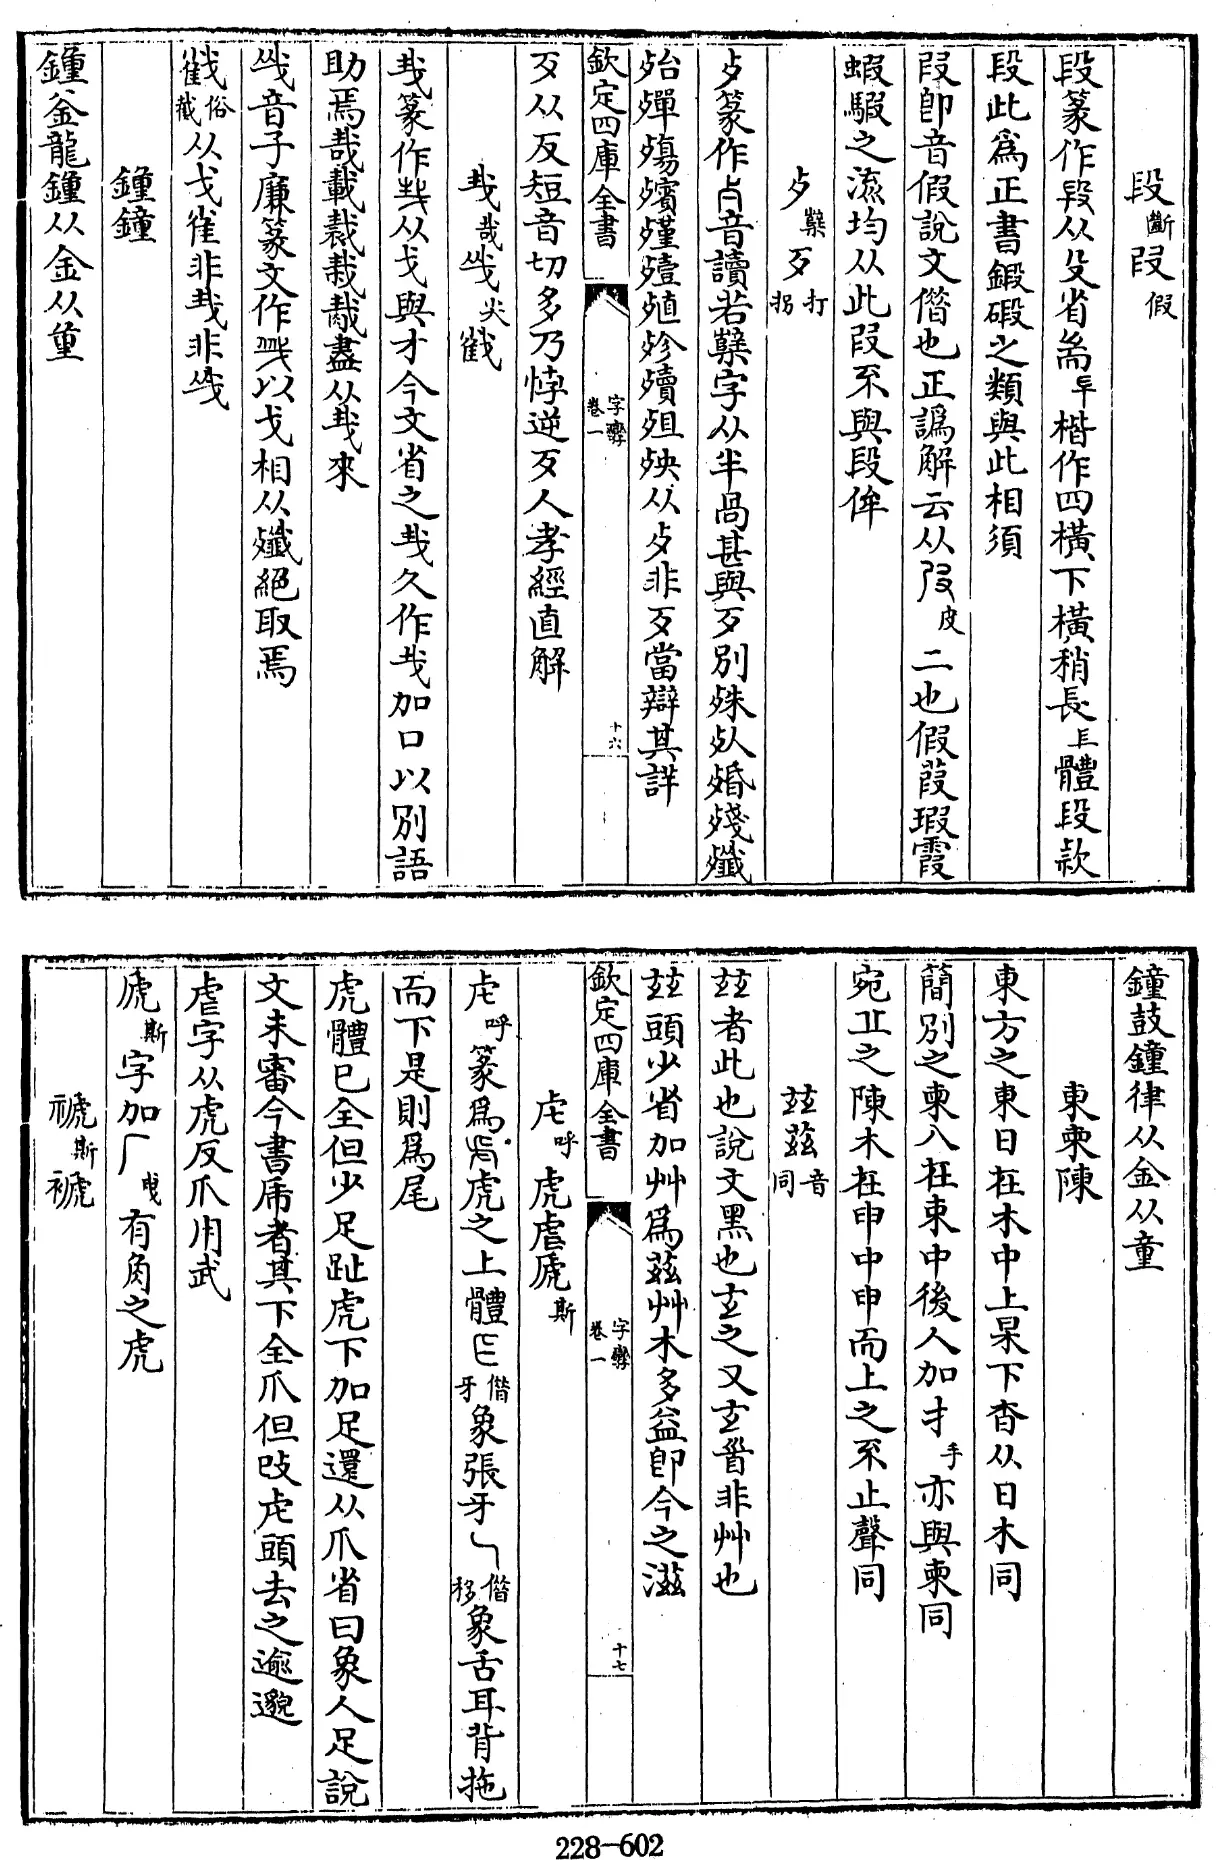 段斷叚假
段篆作段从殳省耑耑楷作四橫下橫稍長體段款
段此爲正書鍛碫之類與此相須
叚卽音假說文借也正譌解云从皮二也假葭瑕霞
蝦騢之流均从此叚不與段侔
歺櫱歹打拐
歺篆作音讀若櫱字从半冎甚與歹別殊㱔殙殘殲
殆殫殤殯殣殪殖殄殰殂殃从歺非歹當辯其詳
欽定四庫全書
字孿卷一
十六
歹从反短音切多乃悖逆歹人孝經直解
𢦏哉㦰尖䧹
𢦏篆作从戈與才今文省之𢦏久作𢦏加口以別語
助焉哉載裁栽胾盡从𢦏來
㦰音子廉篆文作以戈相从殲絕取焉
俗截从戈雀非𢦏非㦰
鍾鐘
鍾釜龍鍾从金从重
鐘鼓鐘律从金从童
東柬陳
東方之東日在木中上杲下杳从日木同
簡別之柬八在束中後人加扌手亦與柬同
宛丘之陳木在申中申而上之不止聲同
玆茲音同
玆者此也說文黑也玄之又玄首非艸也
玆頭少省加艸爲茲艸木多益卽今之滋
欽定四庫全書
字孿卷一
十七
虍呼虎虐虒斯
虍呼篆爲虎之上體借牙象張牙乀借移象舌耳背拖
而下是則爲尾
虎體已全但少足趾虎下加足還从爪省曰象人足說
文未審今書虐者其下全爪但改虍頭去之逾邈
虐字从虎反爪用武
虒斯字加厂曳有角之虎
禠斯褫
228-602